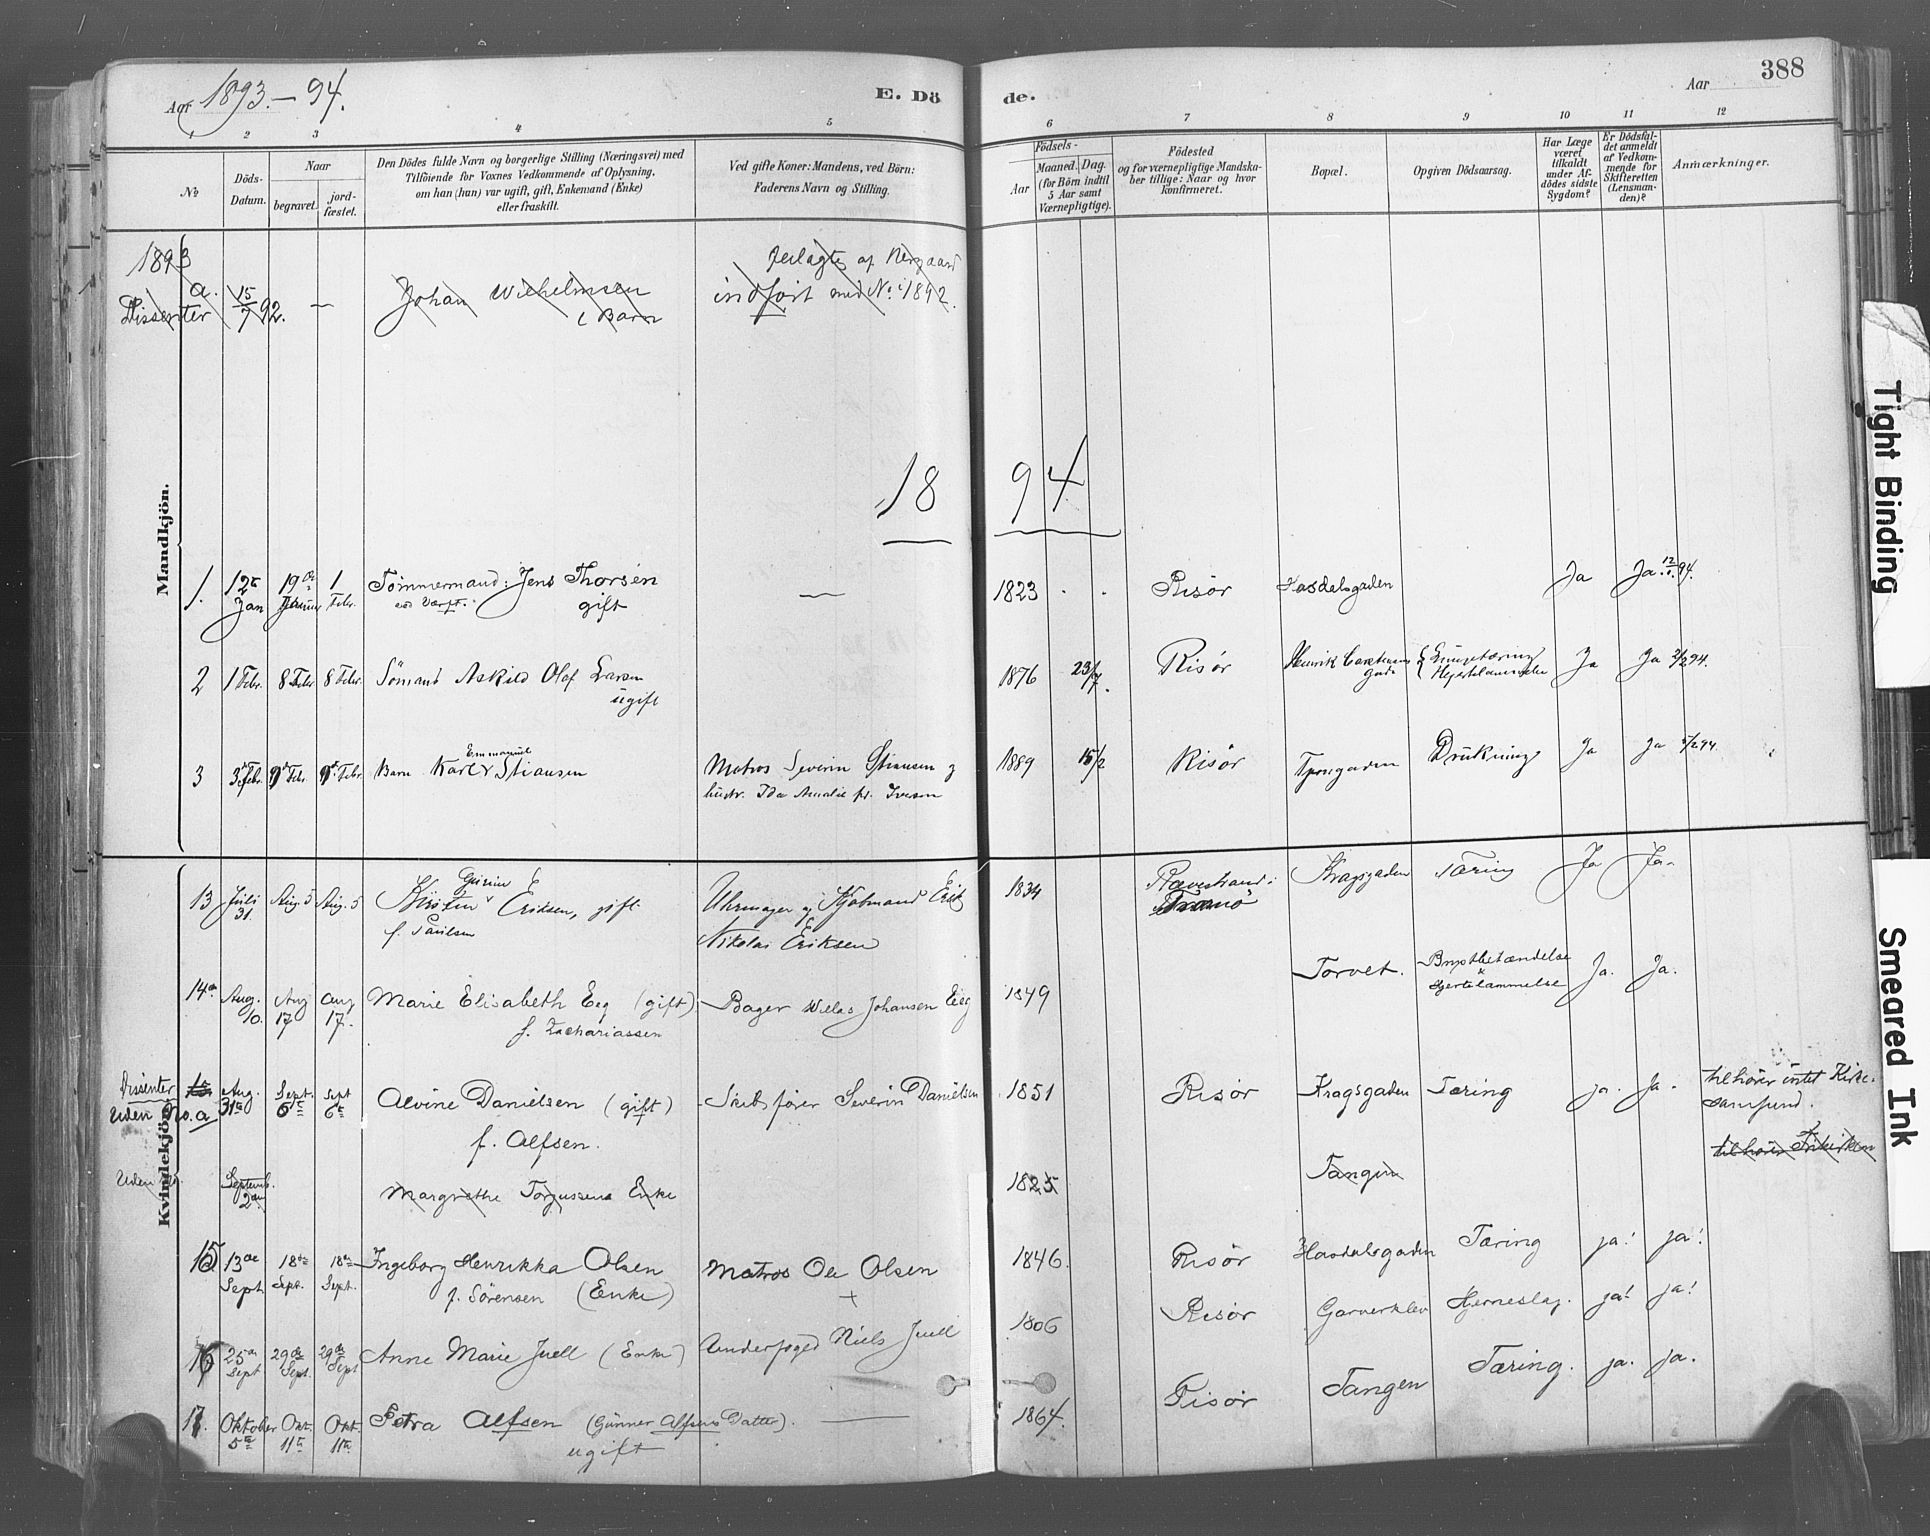 Aar 1893.-94.
E. Döde.
Aar
388
1 2 3 4 5 6 7 8 9 10 11 12
No
Döds-Datum.
Naar
begravet. jord-fæstet.
Den Dödes fulde Navn og borgerlige Stilling (Næringsvei) med
Tilföiende for Voxnes Vedkommende af Oplysning,
om han (hun) var ugift, gift, Enkemand (Enke)
eller fraskilt.
Ved gifte Koner: Mandens, ved Börn:
Faderens Navn og Stilling.
Födsels-
Aar
Maaned. Dag.
(for Börn indtil
5 Aar samt
Værnepligtige).
Födested
og for værnepligtige Mandska-
ber tillige: Naar og hvor
konfirmeret.
Bopæl.
Opgiven Dödsaarsag.
Har Læge
været
tilkaldt
under Af-
dödes sidste
Sygdom?
Er Dödsfal-
det anmeldt
af Vedkom-
mende for
Skifteretten
(Lensman-
den)?
Anmærkninger.
Mandkjön.
1893
a. Dissenter 15/7 92. — Johan Wilhelmsen
Barn
af
indfört med No. 1892.
1894
1. 12te Jan 19de 1 Febr. Tömmermand: Jens Thorsen
gift — 1823 Risör Hasdalsgaden Ja Ja 94.
2 1 Febr. 8 Febr 8 Febr. Sömand Askild Olaf Larsen
ugift 1876 23/7. Risör Henrik gade Ja Ja 2/2 94.
3 3 Febr. 9 Febr 9 Febr Barn Karl Emmanuel Stiansen
Matros Severin Stiansen og
hustr. Ida Amalie f. Iversen
1889 15/2 Risör Drukning Ja Ja 5/2 94
Kvindekjön.
13 Juli 31. Aug. 5 Aug. 5 Kirstin Gurine Eriksen, gift
f. Paulsen
Uhrmager og Kjöbmand Erik
Nikolai Eriksen
1834 Kragsgaden Tæring Ja Ja-
14 Aug. 10. Aug 17 Aug 17. Marie Elisabeth Eeg (gift)
f. Zachariassen
Bager Johansen Eeg
1849 Torvet. Brystbetændelse
&
Hjertelammelse Ja. Ja.
Dissenter
Uden No. a Aug. 31te Sept. 6te Sept 6te Alvine Danielsen (gift)
f. Alfsen.
Skibsförer Severin Danielsen
1851 Risör Kragsgaden Tæring ja. Ja.
tilhörer intet Kirke-
samfund.
Uden No. Septemb. 2den Margrethe Torgussens Enke
1825 Tangen
tilhörer Frikirken
15 13de Sept 18de Sept. 18de Sept. Ingeborg Henrikka Olsen
f. Sörensen (Enke)
Matros Ole Olsen
+
1846. Risör Hasdalsgaden Tæring ja! ja!
16 25de Sept 29de Sept. 29de Sept Anne Marie Juell (Enke) Underfoged Niels Juell
1806 Risör Garverklev Hjerneslag. ja! ja!
17. Oktober 5te Okt. 11te Okt. 11te Petra Alfsen (Gunner Alfsens Datter). —
ugift
1864. Risör Tangen Tæring. ja. ja.
Tight Binding
Smeared Ink